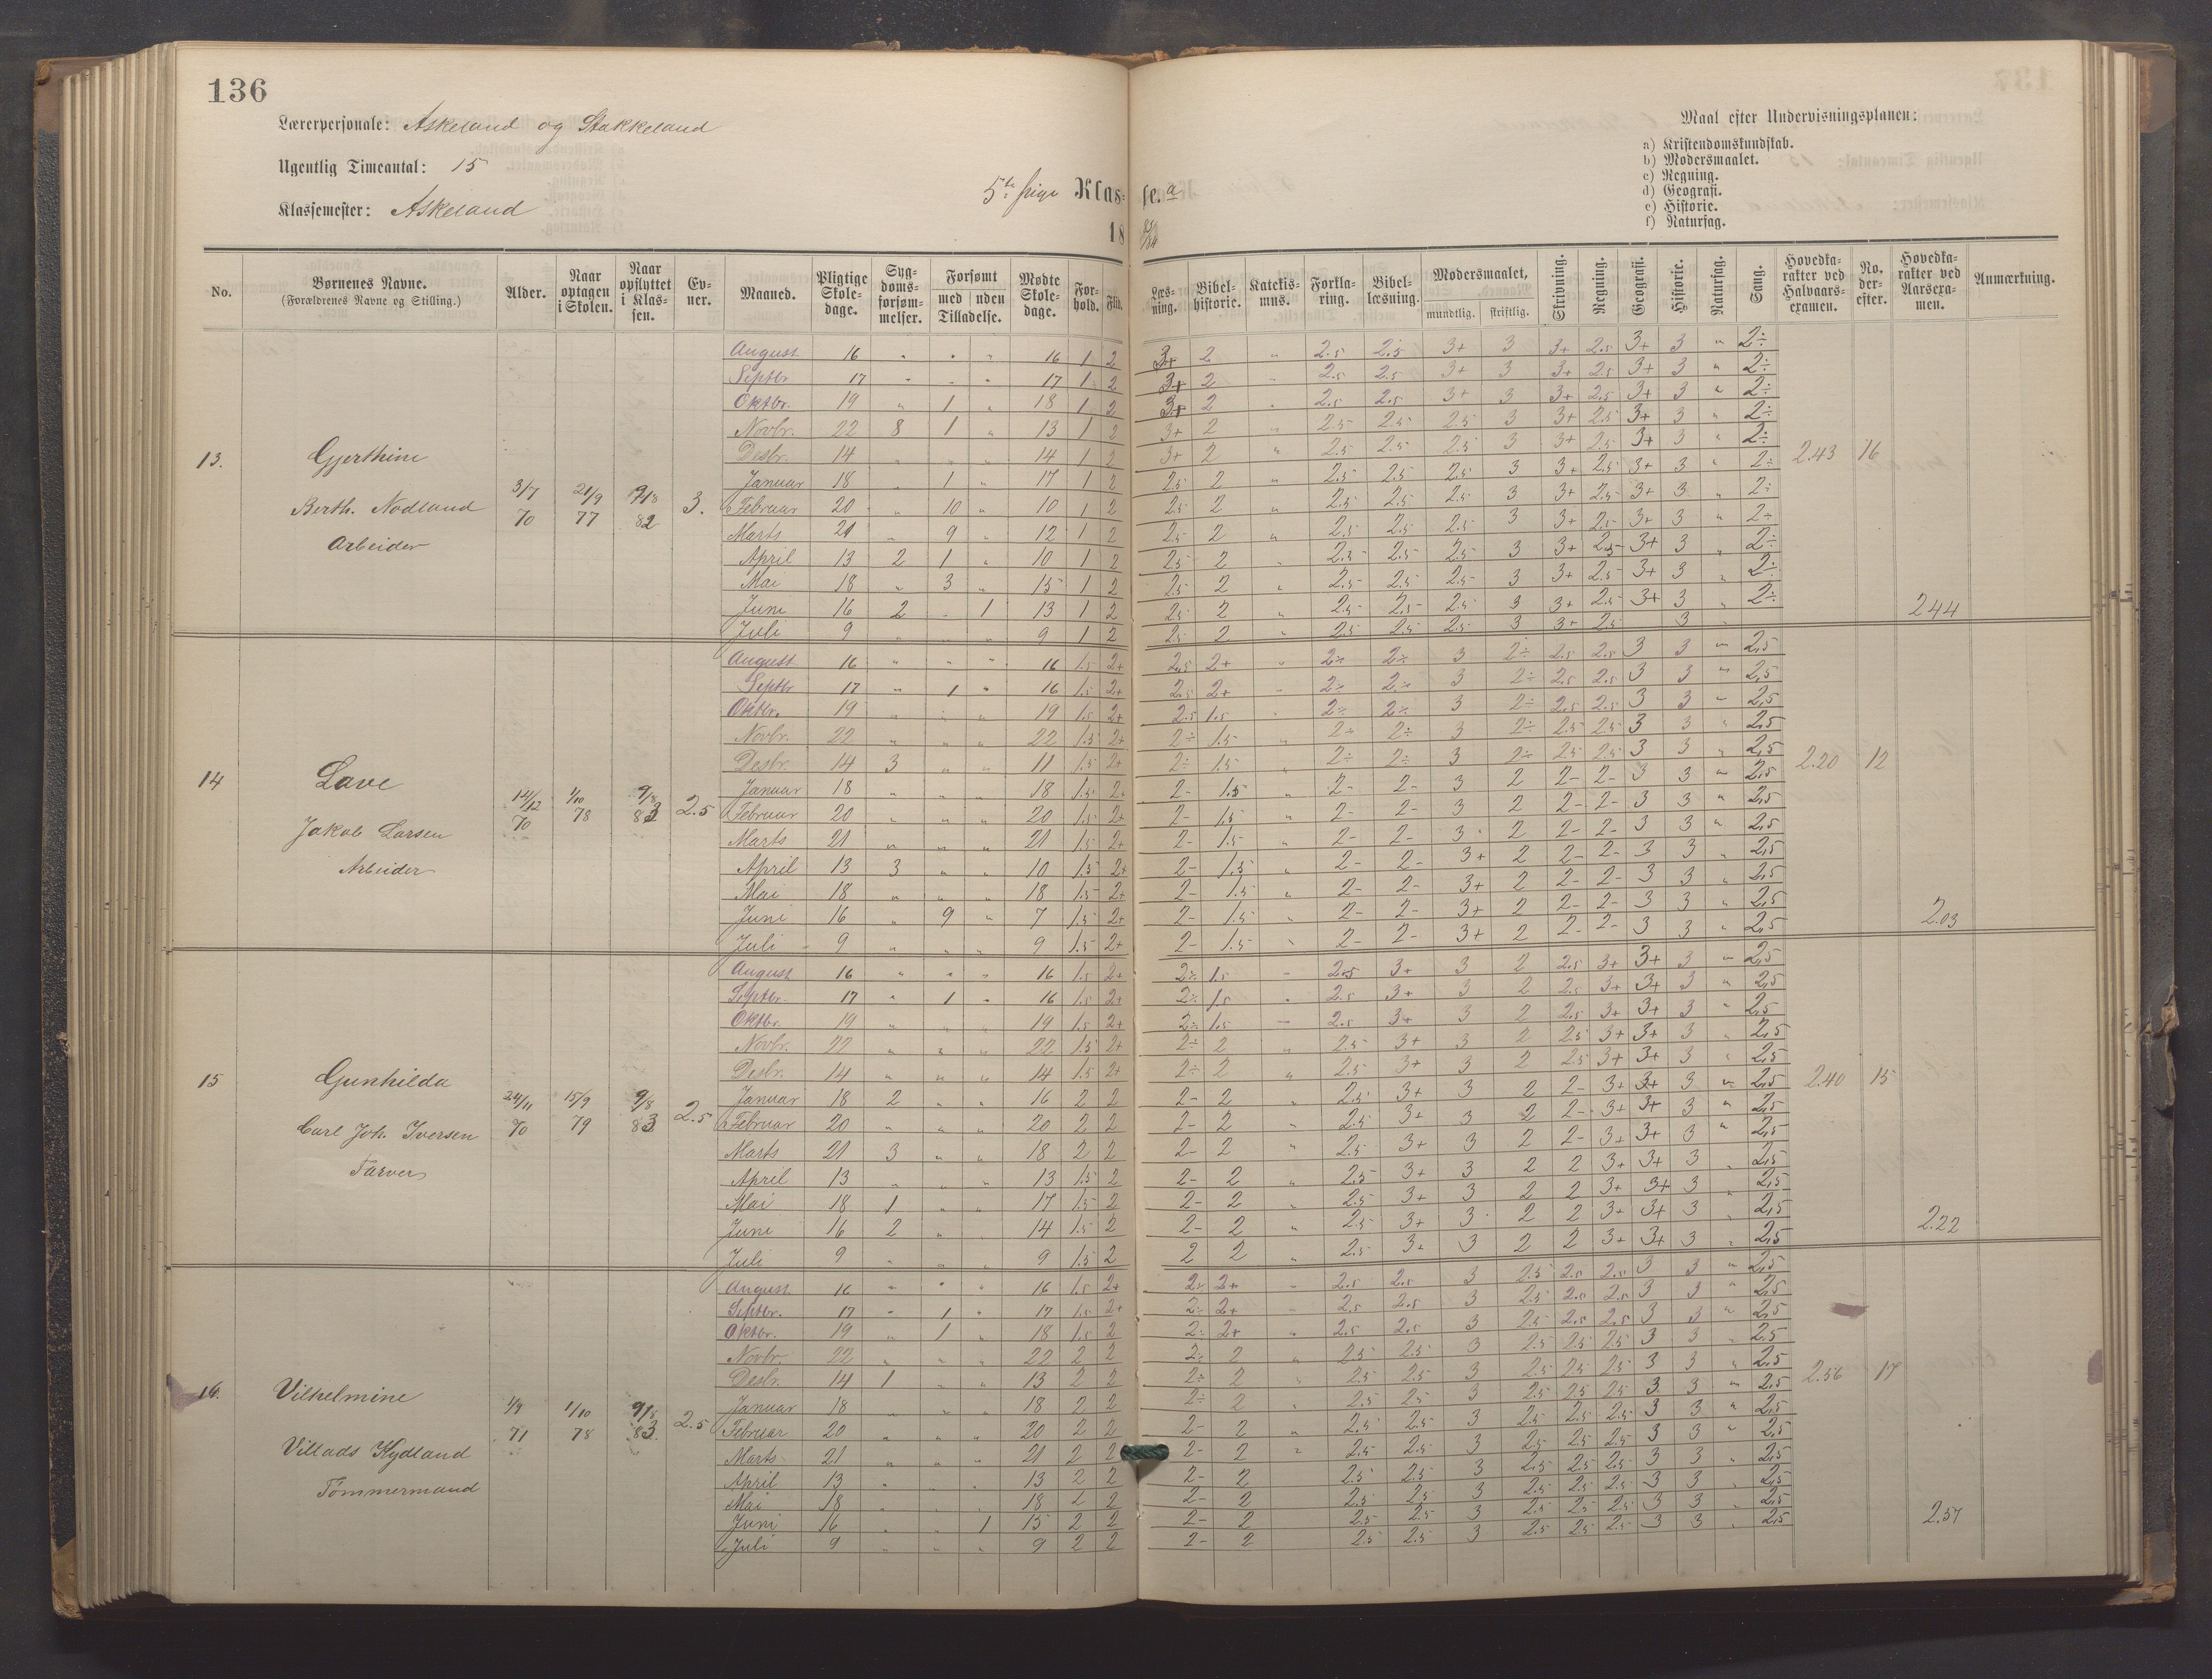 136
Lærerpersonale: Askeland og Stakkeland
Ugentlig Timeantal: 15
Klassemester: Askeland
5te pige Klasse. a
18 83/84
Maal efter Undervisningsplanen:
a) Kristendomskundskab.
b) Modersmaalet.
c) Regning.
d) Geografi.
e) Historie.
f) Naturfag.
No. Børnenes Navne. (Forældrenes Navne og Stilling.) Alder. Naar optagen i Skolen. Naar opflyttet i Klassen. Evner. Maaned. Pligtige Skoledage. Sygdomsforsømmelser. Forsømt med uden Tilladelse. Mødte Skoledage. Forhold. Flid. Læsning. Bibelhistorie. Katekismus. Forklaring. Bibellæsning. Modersmaalet, mundtlig. skriftlig. Skrivning. Regning. Geografi. Historie. Naturfag. Sang. Hovedkarakter ved Halvaarsexamen. No. derefter. Hovedkarakter ved Aarsexamen. Anmærkning.
13. Gjerthine
Berth. Nodland
Arbeider
3/7 70 21/9 77 9/8 82 3.
August 16 " " " 16 1 2 3+ 2 " 2.5 2.5 3+ 3 3+ 2.5 3+ 3 " 2÷
Septbr 17 " " " 17 1 2 3+ 2 " 2.5 2.5 3+ 3 3+ 2.5 3+ 3 " 2÷
Oktbr. 19 " 1 " 18 1 2 3+ 2 " 2.5 2.5 3+ 3 3+ 2.5 3+ 3 " 2÷
Novbr. 22 8 1 " 13 1 2 3+ 2 " 2.5 2.5 2.5 3 3+ 2.5 3+ 3 " 2÷
Desbr. 14 " " " 14 1 2 3+ 2 " 2.5 2.5 2.5 3 3+ 2.5 3+ 3 " 2÷ 2.43 16
Januar 18 " 1 " 17 1 2 2.5 2 " 2.5 2.5 2.5 3 3+ 2.5 3+ 3 " 2÷
Februar 20 " 10 " 10 1 2 2.5 2 " 2.5 2.5 2.5 3 3+ 2.5 3+ 3 " 2÷
Marts 21 " 9 " 12 1 2 2.5 2 " 2.5 2.5 2.5 3 3+ 2.5 3+ 3 " 2÷
April 13 2 1 " 10 1 2 2.5 2 " 2.5 2.5 2.5 3 3+ 2.5 3+ 3 " 2÷
Mai 18 " 3 " 15 1 2 2.5 2 " 2.5 2.5 2.5 3 3+ 2.5 3+ 3 " 2÷
Juni 16 2 " 1 13 1 2 2.5 2 " 2.5 2.5 2.5 3 3+ 2.5 3+ 3 " 2÷ 2.44
Juli 9 " " " 9 1 2 2.5 2 " 2.5 2.5 2.5 3 3+ 2.5 3 "
14 Lave
Jakob Larsen
Arbeider
14/12 70 1/10 78 9/8 83 2.5
August 16 " " " 16 1.5 2+ 2.5 2+ " 2÷ 2÷ 3 2÷ 2.5 2.5 3 3 " 2,5
Septbr 17 " 1 " 16 1.5 2+ 2.5 2+ " 2÷ 2÷ 3 2÷ 2.5 2.5 3 3 " 2,5
Oktbr. 19 " " " 19 1.5 2+ 2.5 1.5 " 2÷ 2÷ 3 2÷ 2.5 2.5 3 3 " 2,5
Novbr. 22 " " " 22 1.5 2+ 2÷ 1.5 " 2÷ 2÷ 3 2÷ 2.5 2.5 3 3 " 2,5
Desbr. 14 3 " " 11 1.5 2+ 2÷ 1.5 " 2÷ 2÷ 3 2÷ 2.5 2.5 3 3 " 2,5 2.20 12
Januar 18 " " " 18 1.5 2+ 2- 1.5 " 2- 2- 3 2 2- 2- 3 3 " 2,5
Februar 20 " " " 20 1.5 2+ 2- 1.5 " 2- 2- 3 2 2- 2- 3 3 " 2,5
Marts 21 " " " 21 1.5 2+ 2- 1.5 " 2- 2- 3 2 2- 2- 3 3 " 2,5
April 13 3 " " 10 1.5 2+ 2- 1.5 " 2- 2- 3+ 2 2- 2- 3 3 " 2,5
Mai 18 " " " 18 1.5 2+ 2- 1.5 " 2- 2- 3+ 2 2- 2- 3 3 " 2,5
Juni 16 " 9 " 7 1.5 2+ 2- 1.5 " 2- 2- 3+ 2 2- 2- 3 3 " 2,5 2.03
Juli 9 " " " 9 1.5 2+ 2- 1.5 " 2- 2- 3+ 2 2- 2- 3 3 " 2,5
15 Gunhilda
Carl Joh. Iversen
Farver
24/11 70 15/9 79 9/8 83 2.5
August 16 " " " 16 1.5 2+ 2÷ 1.5 " 2.5 3+ 3 2 2.5 3+ 3+ 3 " 2,5
Septbr. 17 " 1 " 16 1.5 2+ 2÷ 1.5 " 2.5 3+ 3 2 2.5 3+ 3+ 3 " 2,5
Oktbr. 19 " " " 19 1.5 2+ 2÷ 1.5 " 2.5 3+ 3 2 2.5 3+ 3+ 3 " 2,5
Novbr. 22 " " " 22 1.5 2+ 2÷ 2 " 2.5 3+ 3 2 2.5 3+ 3+ 3 " 2,5
Desbr. 14 " " " 14 1.5 2+ 2÷ 2 " 2.5 3+ 3 2 2.5 3+ 3+ 3 " 2,5 2.40 15
Januar 18 2 " " 16 2 2 2- 2 " 2.5 3+ 3 2 2- 3+ 3+ 3 " 2,5
Februar 20 " " " 20 2 2 2- 2 " 2.5 3+ 3 2 2- 3+ 3+ 3 " 2,5
Marts 21 3 " " 18 2 2 2- 2 " 2.5 3+ 3 2 2- 3+ 3+ 3 " 2,5
April 13 " " " 13 1.5 2 2- 2 " 2.5 3+ 3 2 2 3+ 3+ 3 " 2,5
Mai 18 1 " " 17 1.5 2 2- 2 " 2.5 3+ 3 2 2 3+ 3+ 3 " 2,5
Juni 16 2 " " 14 1.5 2 2- 2 " 2.5 3+ 3 2 2 3+ 3+ 3 " 2,5 2.22
Juli 9 " " " 9 1.5 2 2 2 " 2.5 3+ 3 2 2 3+ 3+ 3 " 2,5
16. Vilhelmine
Villads Kydland
Tømmermand
1/9 71 1/10 78 9/8 83 2.5
August 16 " " " 16 1.5 2+ 2÷ 2+ " 2.5 2.5 3 2.5 2.5 2.5 3 3 " 2,5
Septbr. 17 " 1 " 17 1.5 2+ 2÷ 2+ " 2.5 2.5 3 2.5 2.5 2.5 3 3 " 2,5
Oktbr. 19 " 1 " 18 1.5 2 2÷ 2+ " 2.5 2.5 3 2.5 2.5 2.5 3 3 " 2,5
Novbr. 22 " " " 22 2 2 2÷ 2 " 2.5 2.5 3 2.5 2.5 2.5 3 3 " 2,5
Desbr. 14 1 " " 13 2 2 2÷ 2 " 2.5 2.5 3 2.5 2.5 2.5 3 3 " 2,5 2.56 17
Januar 18 " " " 18 2 2 2÷ 2 " 2.5 2.5 3 2.5 2.5 2.5 3 3 " 2,5
Februar 20 " " " 20 2 2 2- 2 " 2.5 2.5 3 2.5 2.5 2.5 3 3 " 2,5
Marts 21 " " " 21 2 2 2- 2 " 2.5 2.5 3 2.5 2.5 2.5 3 3 " 2,5
April 13 " " " 13 2 2 2- 2 2.5 2.5 3 2.5 2.5 2.5 3 3 " 2,5
Mai 18 " " " 18 2 2 2- 2 2.5 2.5 3 2.5 2.5 2.5 3 3 " 2,5
Juni 16 " " 1 15 2 2 2- 2 2.5 2.5 3 2.5 2.5 2.5 3 3 " 2,5 2.57
Juli 9 " " " 9 2 2 2- 2 2.5 2.5 3 2.5 2.5 2.5 3 3 " 2,5